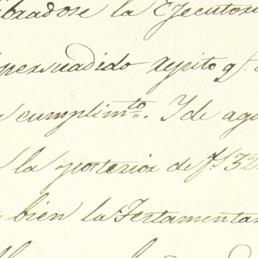 ibradose la Ejecutori
persuadido repito q.e
cumplim.to. Y de aqu
la posterior de f.s 32
bien la Testamentar